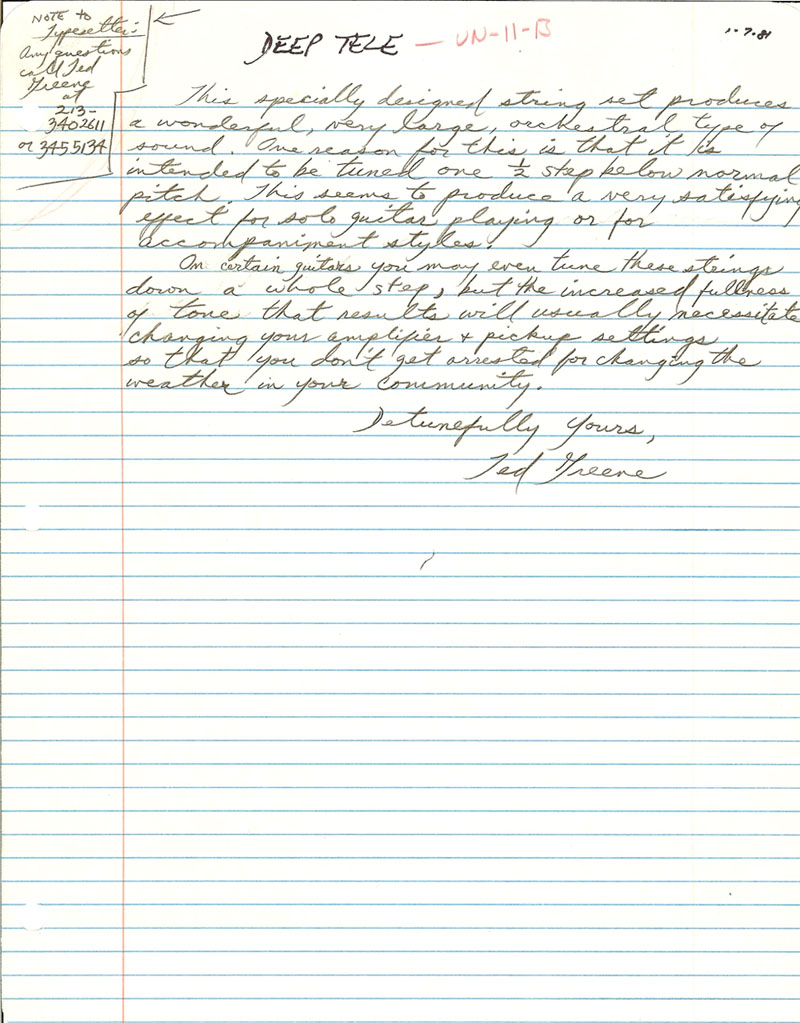 NOTE to
Typesetter:
Any questions
call Ted
Greene
at
213-
3402611
or 3455134
DEEP TELE — UN-11-B
1-7-81
This specially designed string set produces
a wonderful, very large, orchestral type of
sound. One reason for this is that it is
intended to be tuned one ½ step below normal
pitch. This seems to produce a very satisfying
effect for solo guitar playing or for
accompaniment styles.
On certain guitars you may even tune these strings
down a whole step, but the increased fullness
of tone that results will usually necessitate
changing your amplifier + pickup settings
so that you don't get arrested for changing the
weather in your community.
Detunefully Yours,
Ted Greene